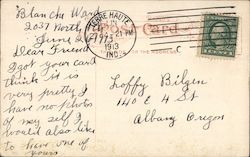 Blanche Ward
2037 North
June 21
Dear Friend
I got your card
think it is
very pretty I
have no photos
of my self I
would also like
to have one of
yours
TERRE HAUTE
21 PM
1913
IND.
Card
Loffy Bilgen
140 E 4 St
Albany Oregon